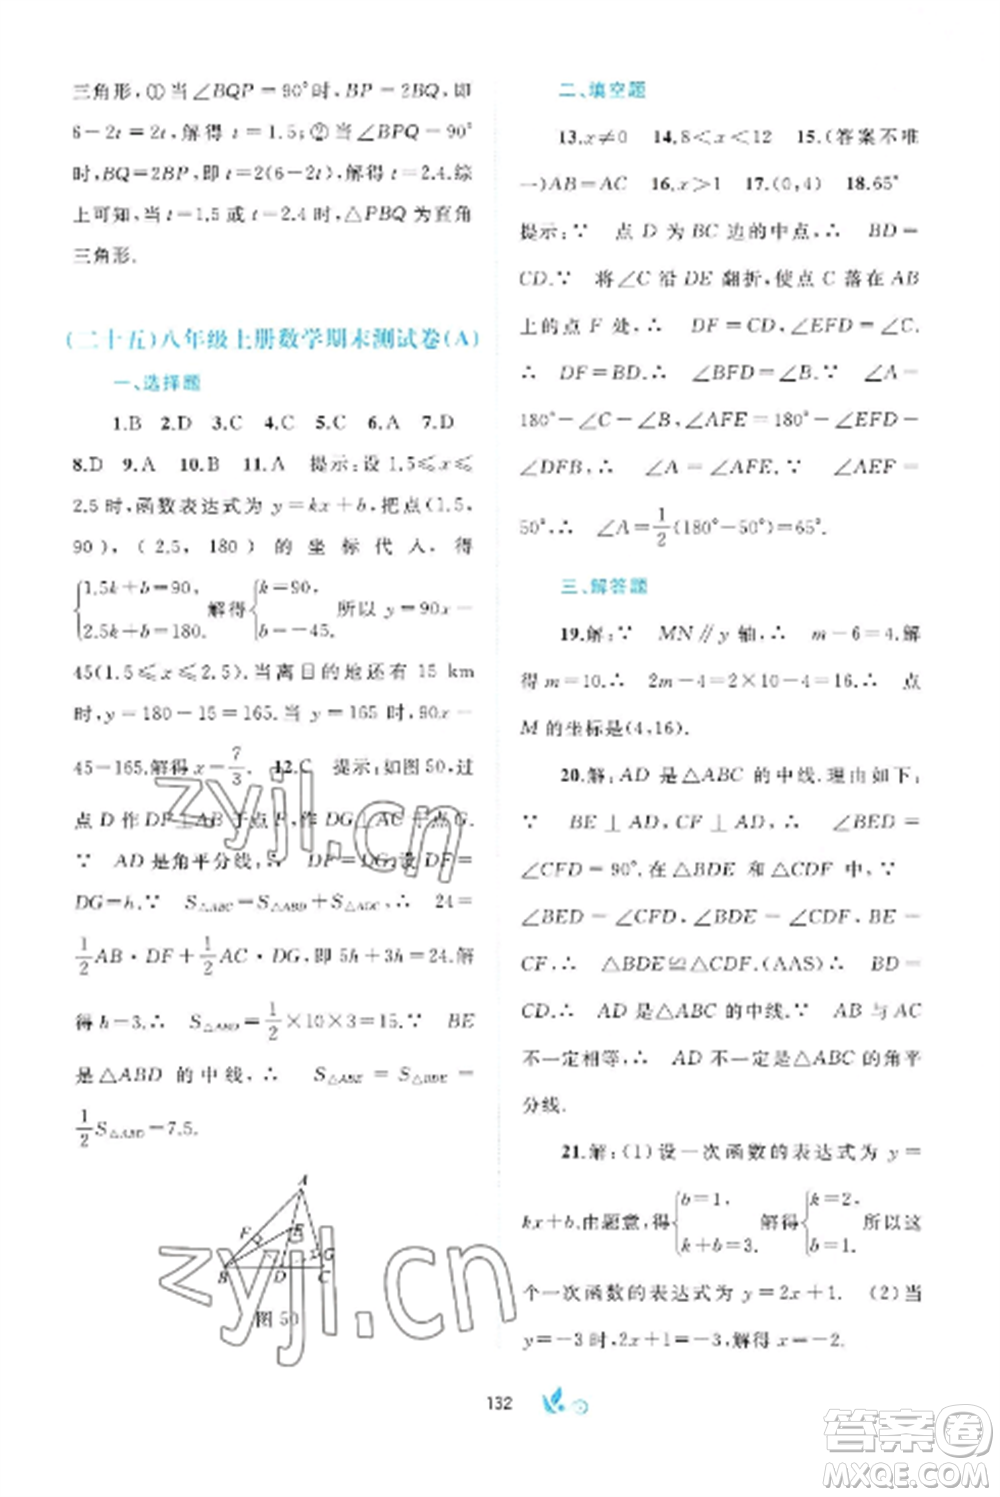 三角形,①当∠BQP=90°时,BP=2BQ,即
6-2t=2t,解得 t=1.5;②当∠BPQ=90°
时,BQ=2BP,即 t=2(6-2t),解得 t=2.4.综
上可知,当 t=1.5 或 t=2.4 时,△PBQ 为直角
三角形.
(二十五)八年级上册数学期末测试卷(A)
一、选择题
1.B 2.D 3.C 4.C 5.C 6.A 7.D
8.D 9.A 10.B 11.A 提示:设 1.5≤x≤
2.5 时,函数表达式为 y=kx+b,把点(1.5,
90),(2.5,180)的坐标代入,得
{1.5k+b=90, 2.5k+b=180. 解得{k=90, b=-45. 所以 y=90x-
45(1.5≤x≤2.5).当离目的地还有 15 km
时,y=180-15=165.当 y=165 时,90x-
45=165.解得 x=7/3. 12.C 提示:如图 50,过
点 D 作 DF⊥AB 于点 F,作 DG⊥AC 于点 G.
∵ AD 是角平分线,∴ DF=DG.设 DF=
DG=h.∵ S△ABC=S△ABD+S△ADC,∴ 24=
1/2 AB·DF+1/2 AC·DG,即 5h+3h=24.解
得 h=3.∴ S△ABD=1/2×10×3=15.∵ BE
是△ABD 的中线,∴ S△ABE=S△BDE=
1/2 S△ABD=7.5.
A
F
E
G
B
D
C
图 50
二、填空题
13.x≠0 14.8<x<12 15.(答案不唯
一)AB=AC 16.x>1 17.(0,4) 18.65°
提示:∵ 点 D 为 BC 边的中点,∴ BD=
CD.∵ 将∠C 沿 DE 翻折,使点 C 落在 AB
上的点 F 处,∴ DF=CD,∠EFD=∠C.
∴ DF=BD.∴ ∠BFD=∠B.∵ ∠A=
180°-∠C-∠B,∠AFE=180°-∠EFD-
∠DFB,∴ ∠A=∠AFE.∵ ∠AEF=
50°,∴ ∠A=1/2(180°-50°)=65°.
三、解答题
19.解:∵ MN∥y 轴,∴ m-6=4.解
得 m=10.∴ 2m-4=2×10-4=16.∴ 点
M 的坐标是(4,16).
20.解:AD 是△ABC 的中线.理由如下:
∵ BE⊥AD,CF⊥AD,∴ ∠BED=
∠CFD=90°.在△BDE 和△CDF 中,∵
∠BED=∠CFD,∠BDE=∠CDF,BE=
CF,∴ △BDE≌△CDF.(AAS)∴ BD=
CD.∴ AD 是△ABC 的中线.∵ AB 与 AC
不一定相等,∴ AD 不一定是△ABC 的角平
分线.
21.解:(1)设一次函数的表达式为 y=
kx+b.由题意,得{b=1, k+b=3. 解得{k=2, b=1. 所以这
个一次函数的表达式为 y=2x+1. (2)当
y=-3时,2x+1=-3,解得 x=-2.
132
zyjl.cn
zyjl.cn
答案圈
MXQE.COM